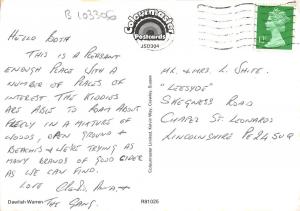 B 103306
Colourmaster
Postcards
JSD304
HELLO BOTH
THIS IS A PLEASANT
ENOUGH PLACE WITH A
NUMBER OF PLACES OF
INTEREST. THE KIDDIES
ARE ABLE TO ROAM ABOUT
FREELY IN A MIXTURE OF
WOODS, OPEN GROUND &
BEACHES & WE'RE TRYING AS
MANY BRANDS OF GOOD CIDER
AS WE CAN FIND.
LOVE
THE GANG.
Dawlish Warren
R81026
Colourmaster Limited, Kelvin Way, Crawley, Sussex
MR. & MRS. L.
"LEESYDE"
SKEGNESS ROAD
CHAPEL ST. LEONARDS
LINCOLNSHIRE PE24 5UQ